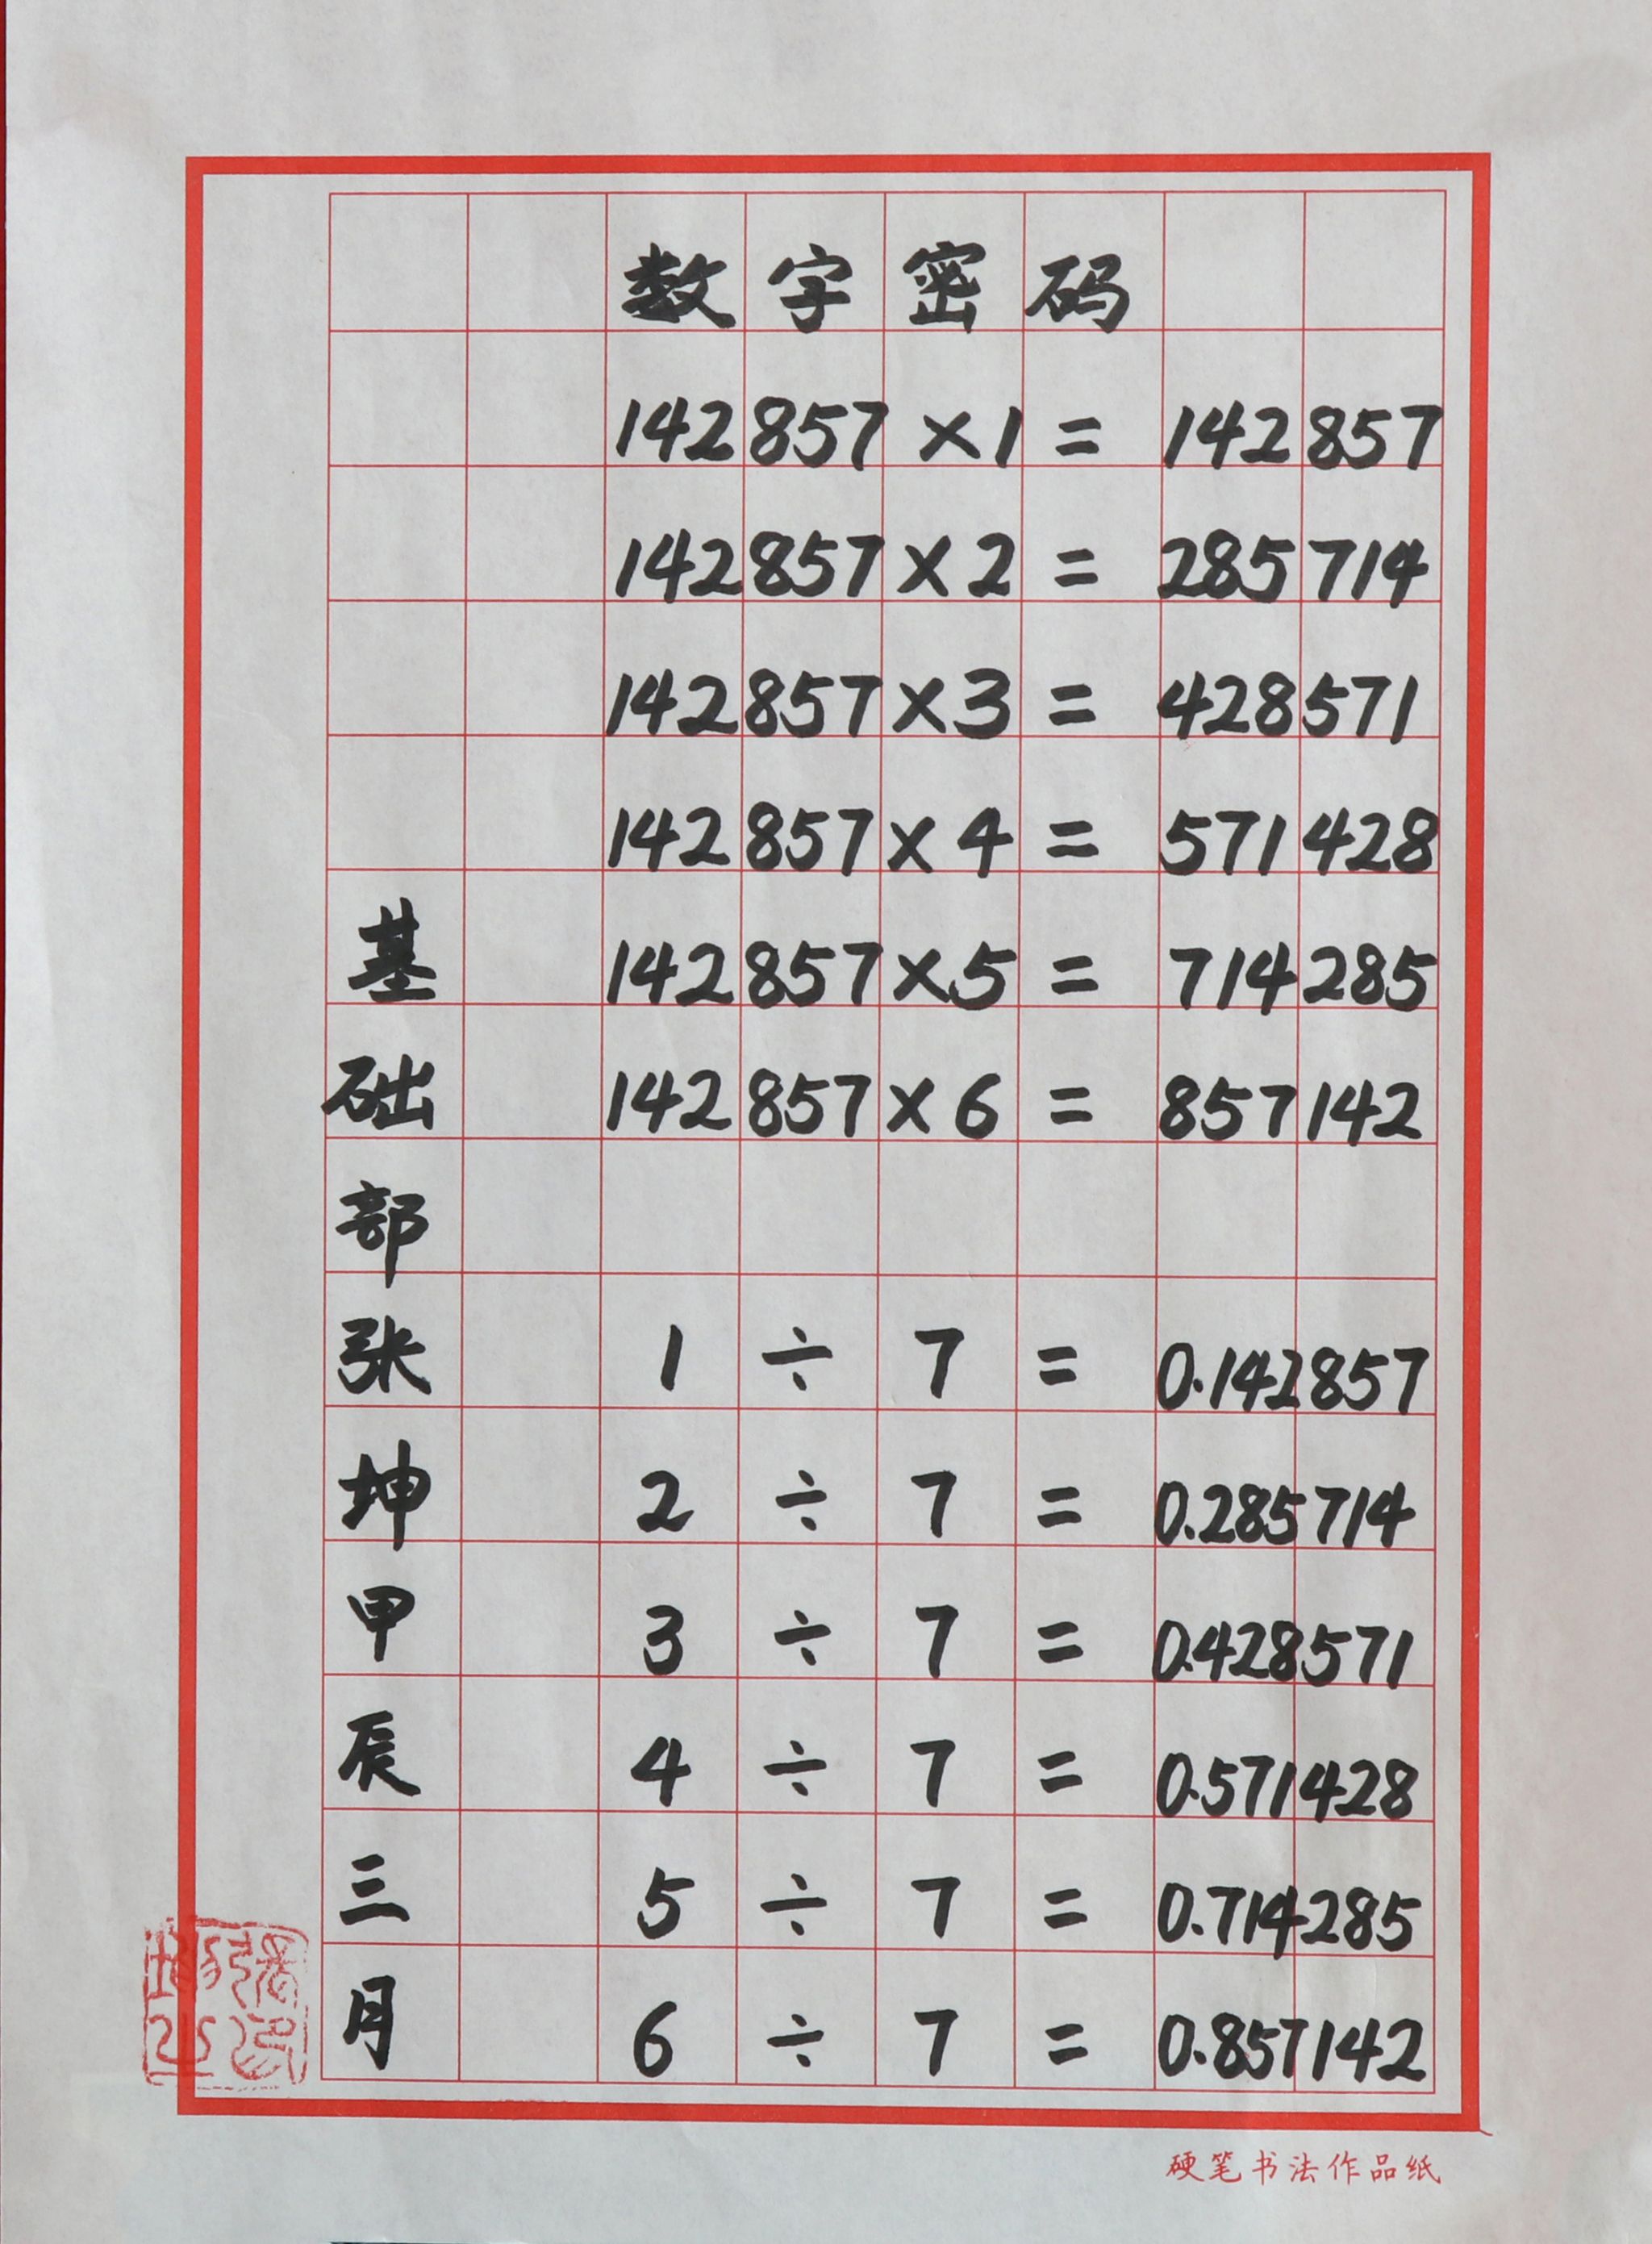 数字密码
142857×1=142857
142857×2=285714
142857×3=428571
142857×4=571428
142857×5=714285
142857×6=857142
1÷7=0.142857
2÷7=0.285714
3÷7=0.428571
4÷7=0.571428
5÷7=0.714285
6÷7=0.857142
基础部张坤甲辰三月
硬笔书法作品纸